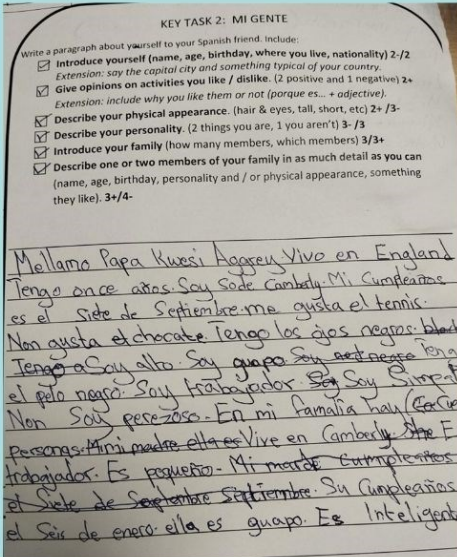 KEY TASK 2: MI GENTE
Write a paragraph about yourself to your Spanish friend. Include:
Introduce yourself (name, age, birthday, where you live, nationality) 2-/2
Extension: say the capital city and something typical of your country.
Give opinions on activities you like / dislike. (2 positive and 1 negative) 2+
Extension: include why you like them or not (porque es... + adjective).
Describe your physical appearance. (hair & eyes, tall, short, etc) 2+ /3-
Describe your personality. (2 things you are, 1 you aren't) 3- /3
Introduce your family (how many members, which members) 3/3+
Describe one or two members of your family in as much detail as you can
(name, age, birthday, personality and / or physical appearance, something
they like). 3+/4-
Mellamo Papa Kwesi Aggrey. Vivo en England
Tengo once años. Soy de Camberly. Mi Cumpleaños
es el Siete de Septiembre. me gusta el tennis.
Non gusta el chocate. Tengo los ojos negros. black
Tengo a Soy alto. Soy guapo
el pelo negro. Soy trabajador. Soy Soy
Non Soy perezoso. En mi familia hay
Personas. Mimi madre ella es Vive en Camberly She
trabajador. Es pequeño. Mi marde Cumpleaños
el Siete de Septiembre. Su Cumpleaños
el Seis de enero. ella es guapo. Es